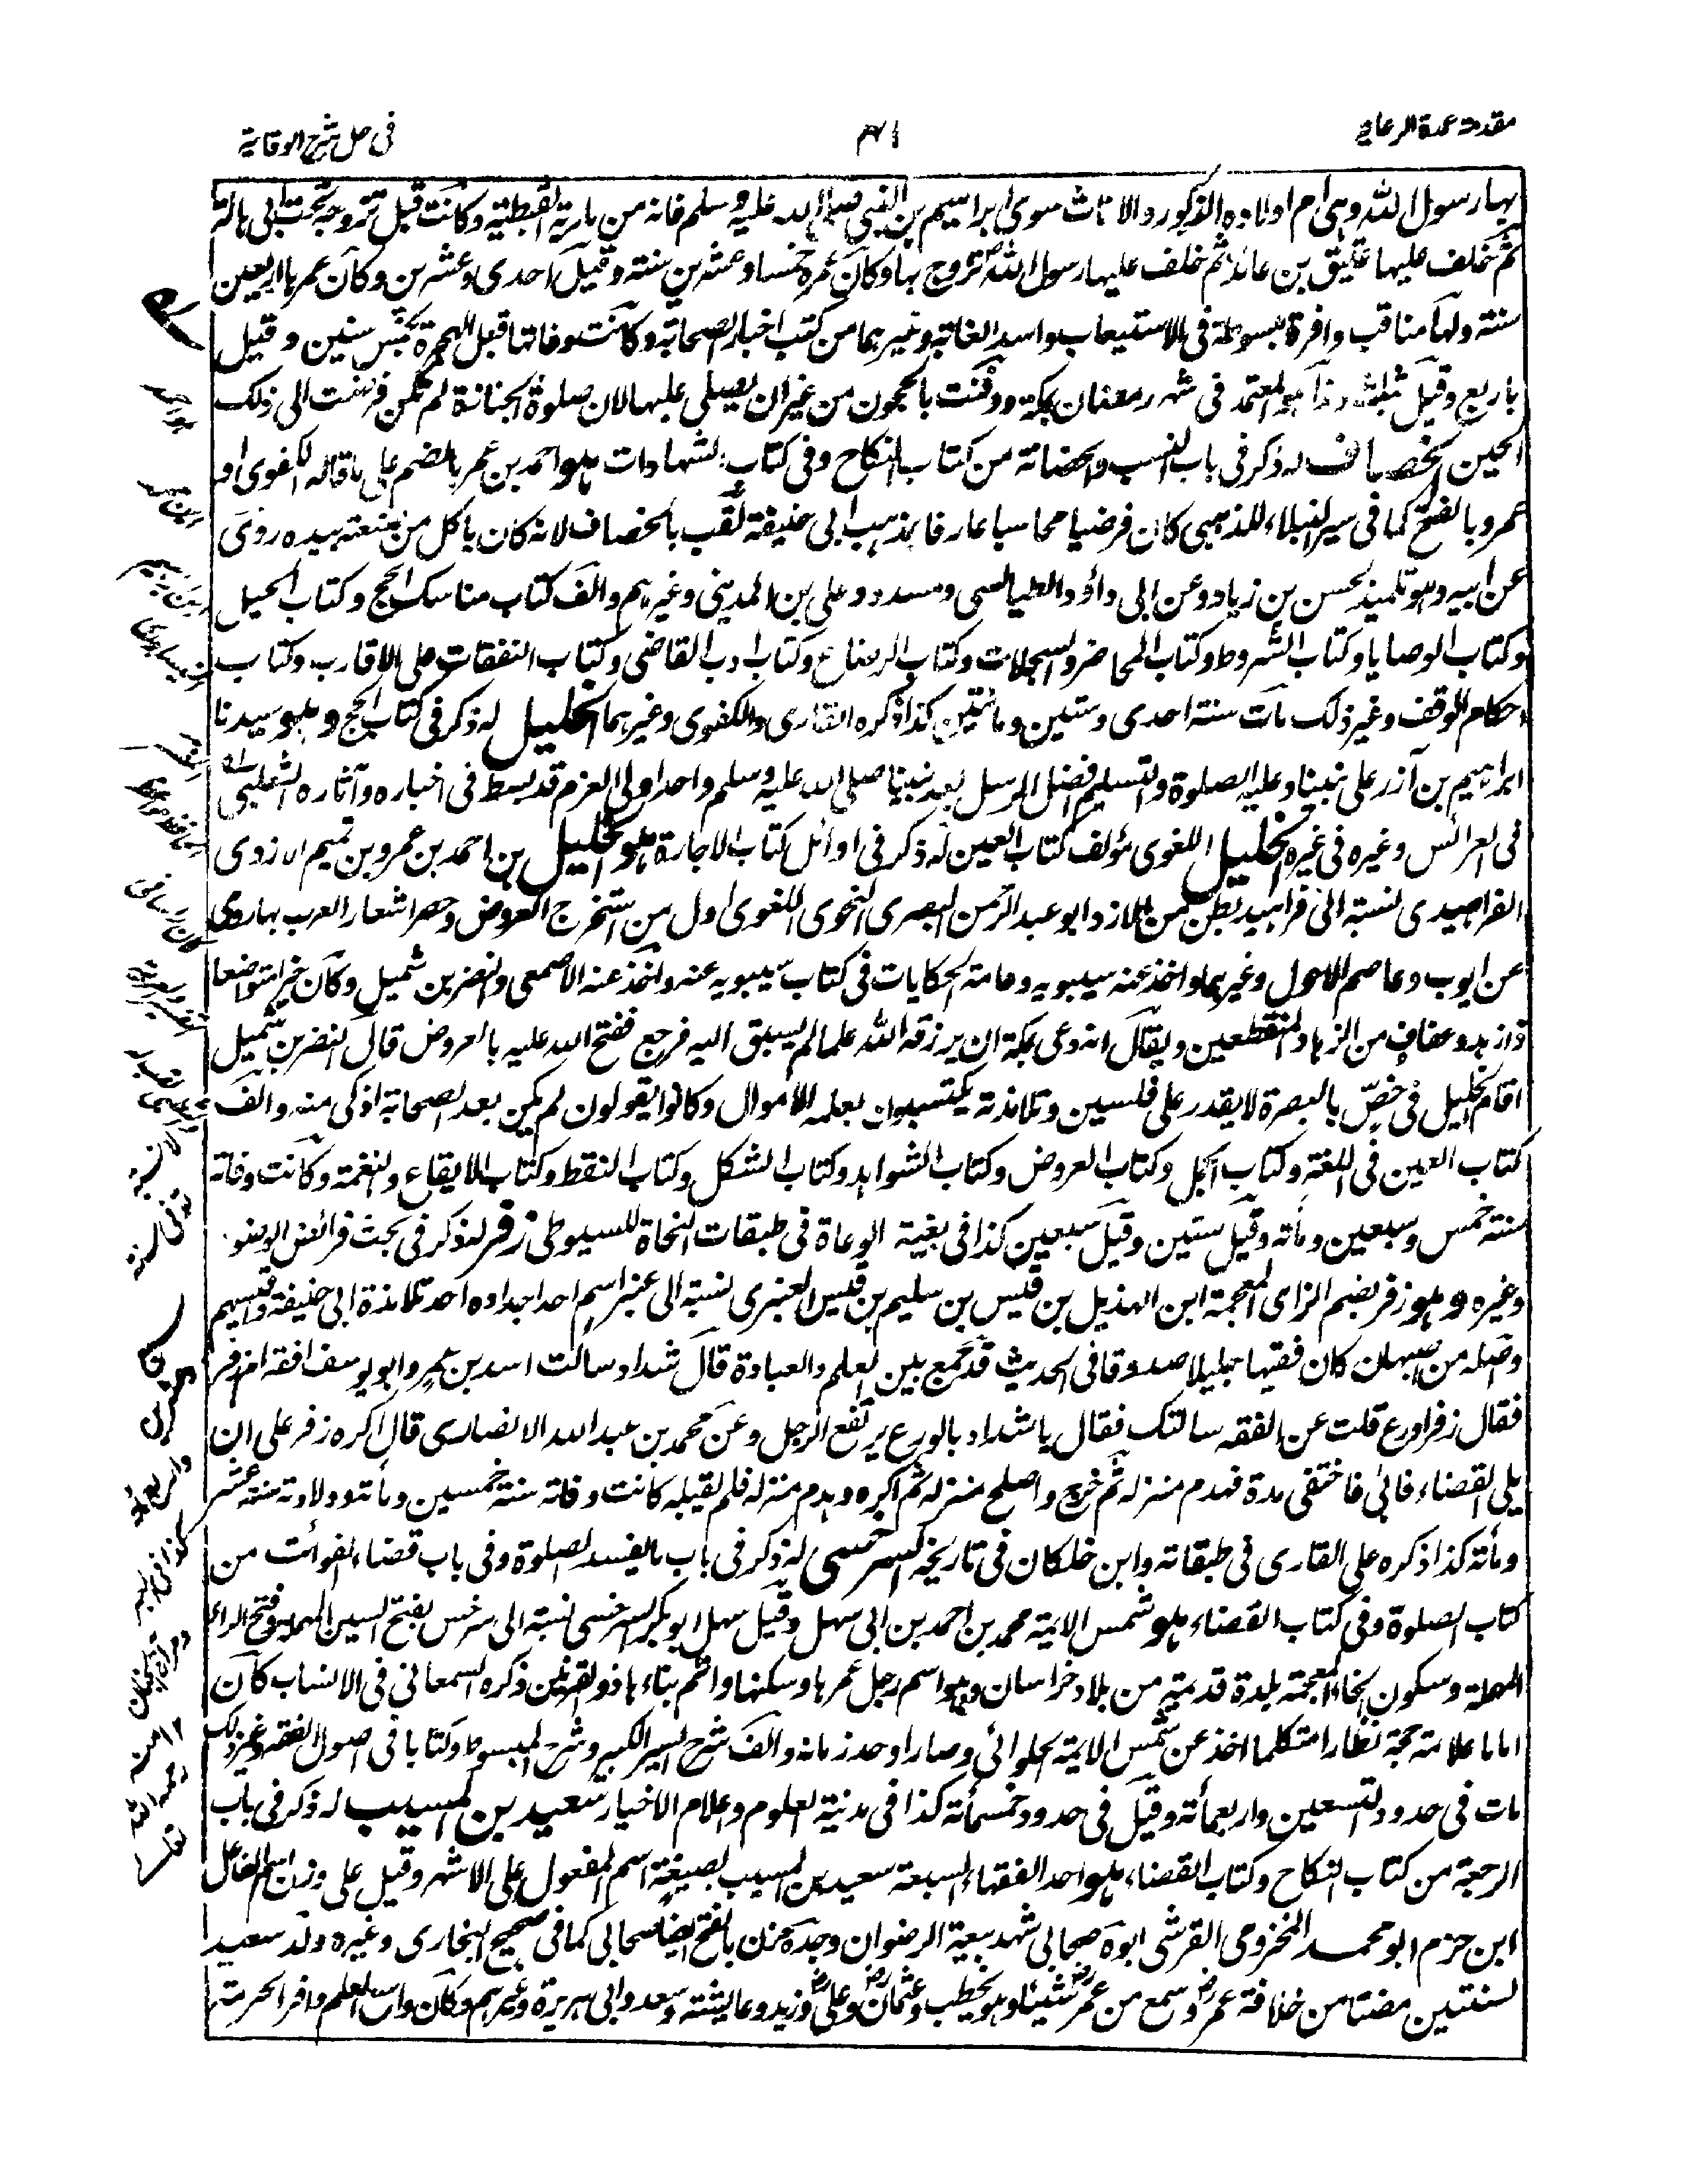 مقدمة عمدة الرعاية
٣١
فى حل شرح الوقاية
بها رسول الله وهى ام اولاده الذكور والاناث سوى ابراهيم بن النبى صلى الله عليه وسلم فانه من مارية القبطية وكانت قبل تزوجه تحت ابى هالة
ثم خلف عليها عتيق بن عائذ ثم خلف عليها رسول الله تزوج بها وكان عمره خمسا وعشرين سنة وقيل احدى وعشرين وكان عمرها اربعين
سنة ولها مناقب وافرة مبسوطة فى الاستيعاب واسد الغابة وغيرهما من كتب اخبار الصحابة وكانت وفاتها قبل الهجرة بخمس سنين وقيل
باربع وقيل بثلث وهذا هو المعتمد فى شهر رمضان بمكة ودفنت بالحجون من غير ان يصلى عليها لان صلوة الجنازة لم تكن فرضت الى ذلك
الحين الخصاف له ذكر فى باب النسب والحضانة من كتاب النكاح وفى كتاب الشهادات هو احمد بن عمر بالضم على ما قاله الكفوى او
عمرو بالفتح كما فى سير النبلاء للذهبى كان فرضيا محاسبا عارفا بمذهب ابى حنيفة لقب بالخصاف لانه كان ياكل من صنعة بيده روى
عن ابيه وهو تلميذ لحسن بن زياد وعن ابى داؤد الطيالسى ومسدد وعلى بن المدينى وغيرهم والف كتاب مناسك الحج وكتاب الحيل
وكتاب الوصايا وكتاب الشروط وكتاب المحاضر والسجلات وكتاب الرضاع وكتاب ادب القاضى وكتاب النفقات على الاقارب وكتاب
احكام الوقف وغير ذلك مات سنة احدى وستين ومائتين كذا ذكره القارى والكفوى وغيرهما الخليل له ذكر فى كتاب الحج وهو سيدنا
ابراهيم بن آزر على نبينا وعليه الصلوة والتسليم افضل الرسل بعد نبينا صلى الله عليه وسلم واحد اولى العزم قد بسط فى اخباره وآثاره الثعلبى
فى العرائس وغيره فى غيره الخليل اللغوى مؤلف كتاب العين له ذكر فى اوائل كتاب الاجارة هو الخليل بن احمد بن عمرو بن تميم الازدى
الفراهيدى نسبة الى فراهيد بطن من الازد ابو عبد الرحمن البصرى النحوى اللغوى اول من استخرج العروض وحصر اشعار العرب بها روى
عن ايوب وعاصم الاحول وغيرهما واخذ عنه سيبويه وعامة الحكايات فى كتاب سيبويه عنه واخذ عنه الاصمعى والنضر بن شميل وكان خيرا متواضعا
ذا زهد وعفاف من الزهاد المنقطعين ويقال انه دعى بمكة ان يرزقه الله علما لم يسبق اليه فرجع ففتح الله عليه بالعروض قال النضر بن شميل
اقام الخليل فى خص بالبصرة لا يقدر على فلسين وتلامذته يكتسبون بعلمه الاموال وكانوا يقولون لم يكن بعد الصحابة اذكى منه والف
كتاب العين فى اللغة وكتاب الجمل وكتاب العروض وكتاب الشواهد وكتاب الشكل وكتاب النقط وكتاب الايقاع والنغمة وكانت وفاته
سنة خمس وسبعين ومائة وقيل ستين وقيل سبعين كذا فى بغية الوعاة فى طبقات النحاة للسيوطى زفر له ذكر فى بحث فرائض الوضوء
وغيره وهو زفر بضم الزاى المعجمة ابن الهذيل بن قيس بن سليم بن قيس العنبرى نسبة الى عنبر اسم احد اجداده احد تلامذة ابى حنيفة واقيسهم
واصله من اصبهان كان فقيها جليلا صدوقا فى الحديث قد جمع بين العلم والعبادة قال شداد سألت اسد بن عمرو ابو يوسف افقه ام زفر
فقال زفر اورع قلت عن الفقه سالتك فقال يا شداد بالورع يرتفع الرجل وعن محمد بن عبد الله الانصارى قال اكره زفر على ان
يلى القضاء فابى فاختفى مدة فهدم منزله ثم خرج واصلح منزله ثم اكره وهدم منزله فلم يقبله كانت وفاته سنة خمسين ومائة وولادته سنة عشر
ومائة كذا ذكره على القارى فى طبقاته وابن خلكان فى تاريخه السرخسى له ذكر فى باب ما يفسد الصلوة وفى باب قضاء الفوائت من
كتاب الصلوة وفى كتاب القضاء هو شمس الايمة محمد بن احمد بن ابى سهل وقيل سهل ابو بكر السرخسى نسبة الى سرخس بفتح السين المهملة وفتح الراء
المهملة وسكون الخاء المعجمة بلدة قديمة من بلاد خراسان وهو اسم رجل عمرها وسكنها واتم بناءها ذو القرنين ذكره السمعانى فى الانساب كان
اماما علامة حجة نظارا متكلما اخذ عن شمس الايمة الحلوائى وصار اوحد زمانه والف شرح السير الكبير وشرح المبسوط وكتابا فى اصول الفقه وغير ذلك
مات فى حدود التسعين واربعمأتة وقيل فى حدود خمسمأتة كذا فى مدينة العلوم واعلام الاخيار سعيد بن المسيب له ذكر فى باب
الرجعة من كتاب النكاح وكتاب القضاء هو احد الفقهاء السبعة سعيد بن المسيب بصيغة اسم المفعول على الاشهر وقيل على وزن اسم الفاعل
ابن حزم ابو محمد المخزومى القرشى ابوه صحابى شهد بيعة الرضوان وجده حزن بالفتح ايضا صحابى كما فى صحيح البخارى وغيره ولد سعيد
لسنتين مضتا من خلافة عمر وسمع من عمر شيئا وهو يخطب وعثمان وعلى وزيد وعايشة وسعد وابى هريرة وغيرهم وكان واسع العلم وافر الحرمة